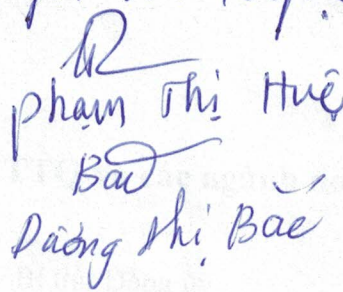 Phạm Thị Huệ
Bắc
Dương Thị Bắc